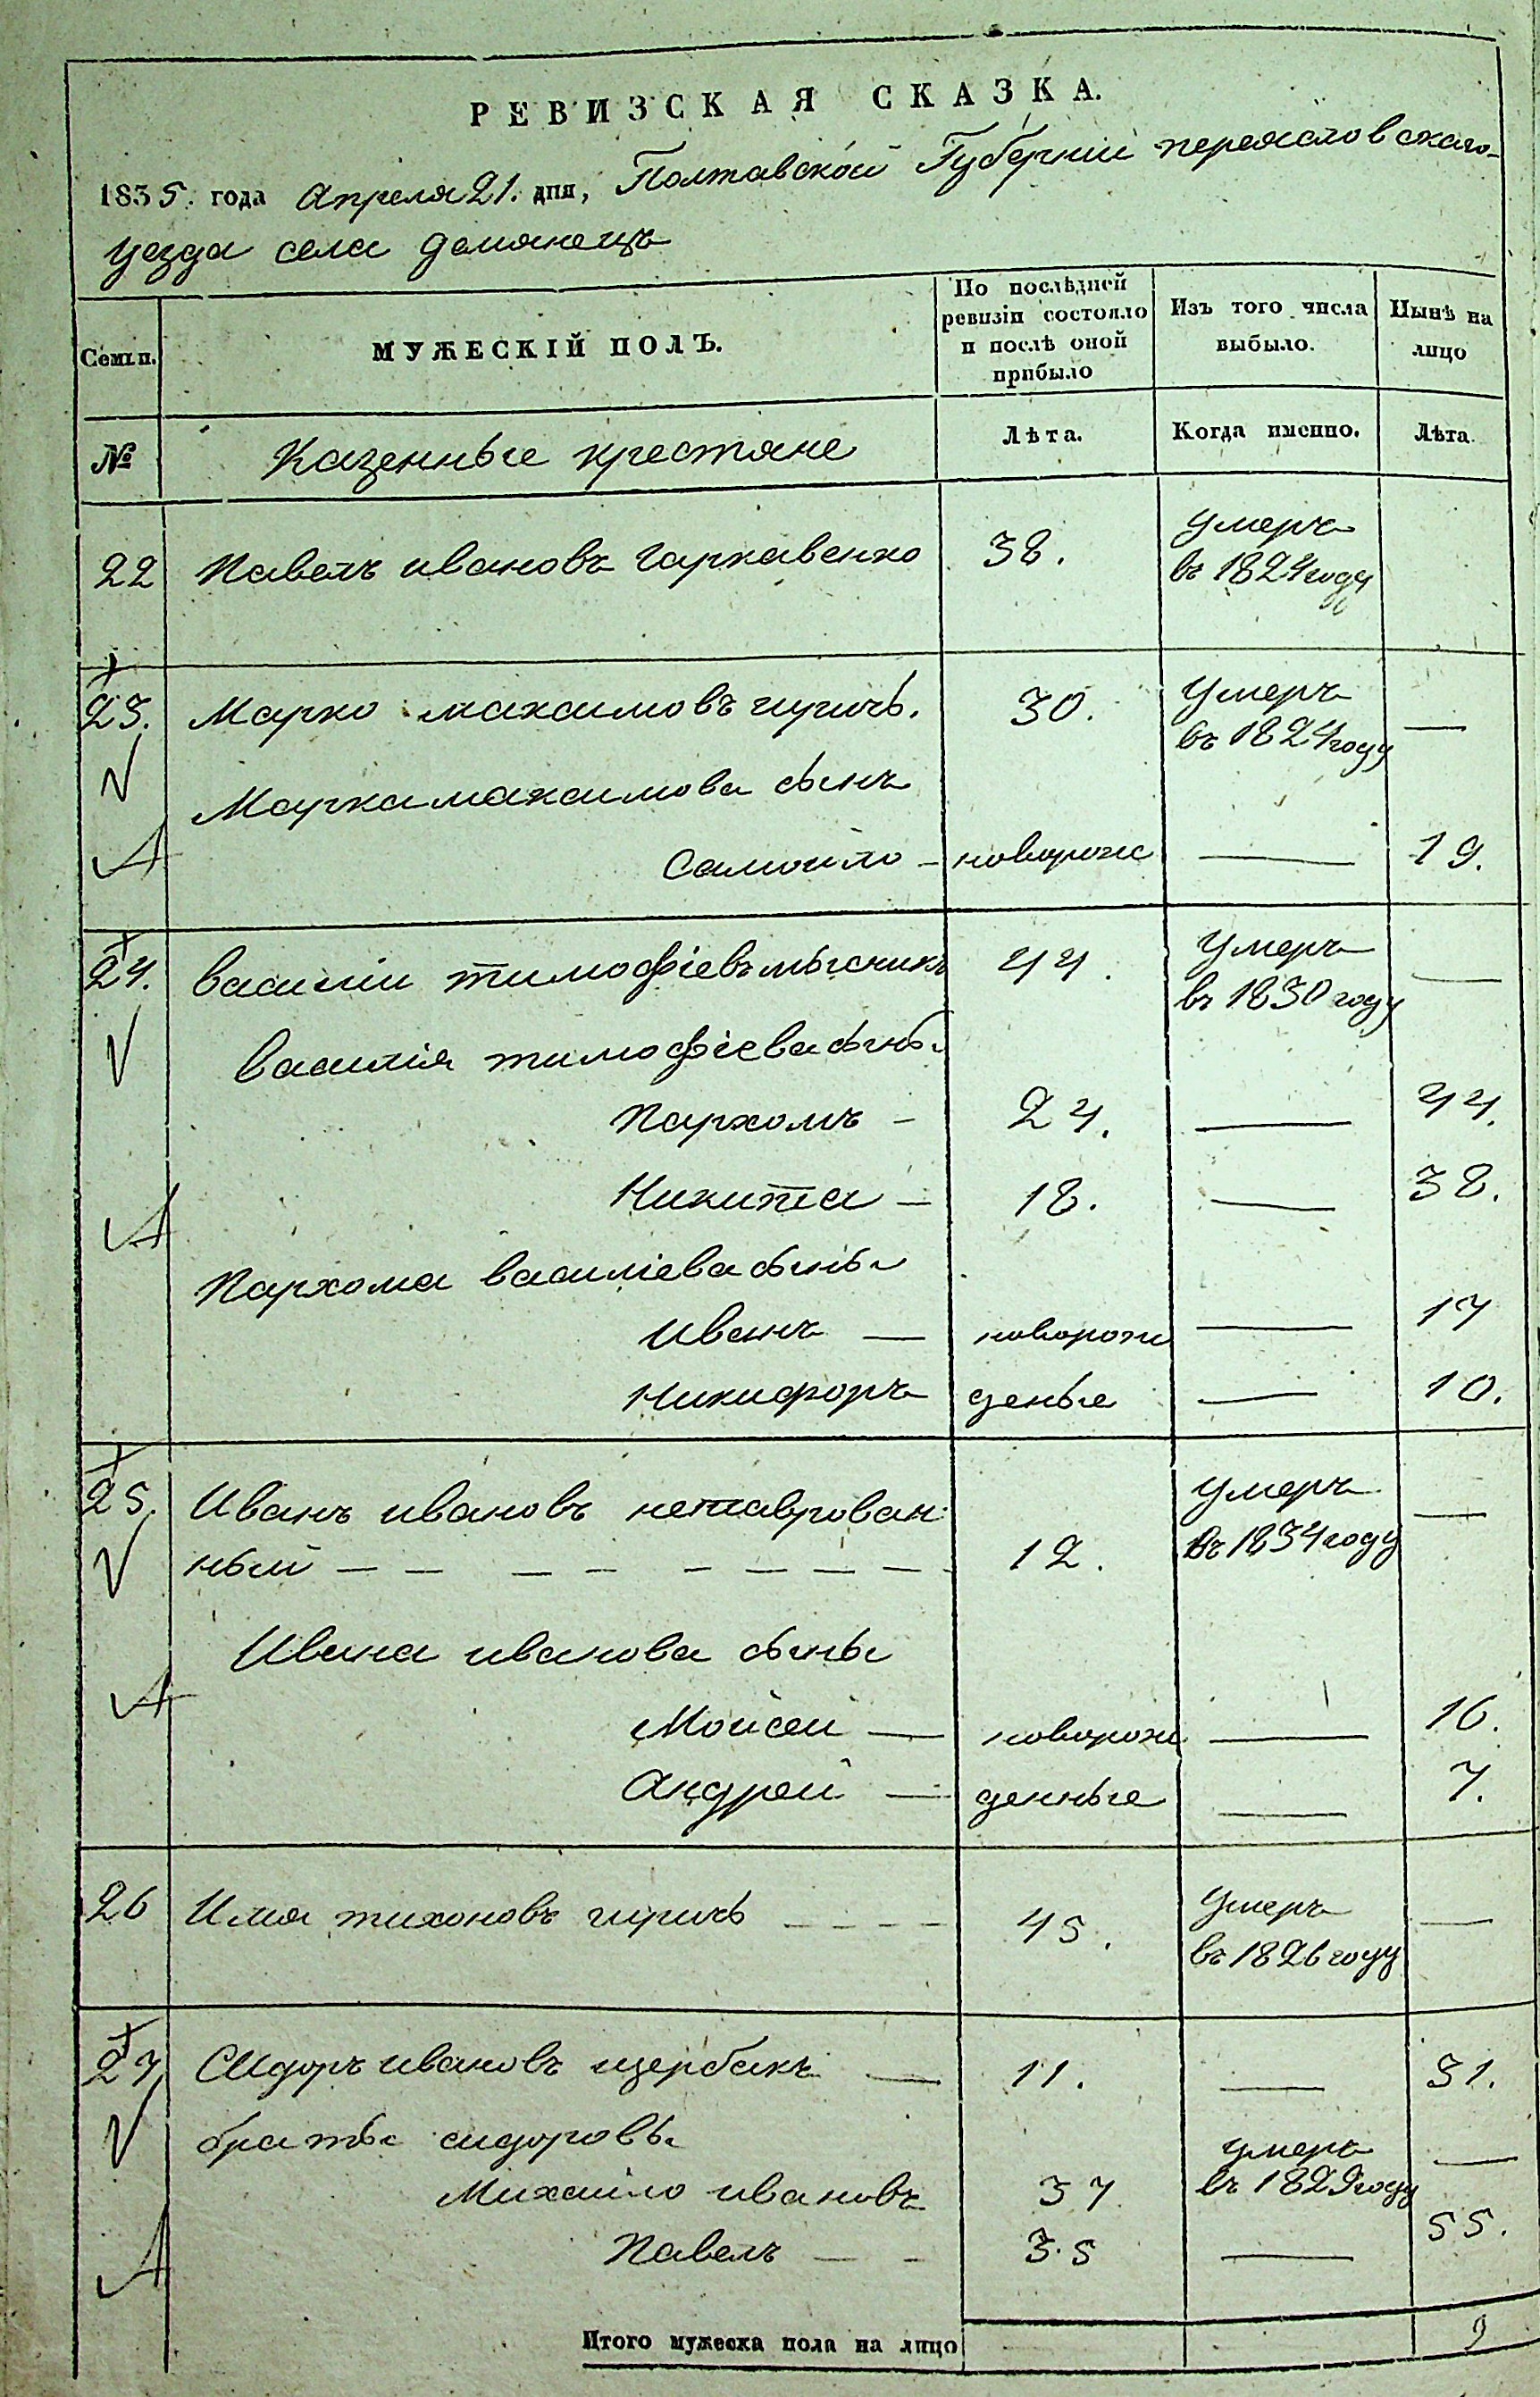 РЕВИЗСКАЯ СКАЗКА.
1835. года Апреля 21. дня, Полтавской Губернии переясловского
уезда села демянецъ
Семьи.
МУЖЕСКІЙ ПОЛЪ.
По послѣдней ревизіи состояло и послѣ оной прибыло
Изъ того числа выбыло.
Нынѣ на лицо
№
Казенные крестяне
Лѣта.
Когда именно.
Лѣта.
22 Павелъ ивановъ гаркавенко 38. умеръ
въ 1824 году
23. Марко максимовъ гиричъ. 30. умеръ —
въ 1824 году
Марка максимова сынъ
Самойло — новорож — 19.
24. василии тимофіевъ 44. умеръ —
въ 1830 году
василія тимофіева сыны
Пархомъ — 24. — 44.
Никита — 18. — 38.
Пархома василіева сыны
Иванъ — новорож — 17
Никифоръ деные — 10.
25. Иванъ ивановъ нетаврован
ный — — — — — — — — — 12. умеръ —
въ 1834 году
Ивана иванова сыны
Мойсей — новорож — 16.
Андрей — денные — 7.
26 Илия тихоновъ гиричъ — — — — 45. умеръ —
въ 1826 году
27 Сидоръ ивановъ щербакъ — 11. — 31.
братья сидоровы
Михайло ивановъ 37 умеръ —
въ 1829 году
Павелъ — — 35 — 55.
Итого мужеска пола на лицо 9